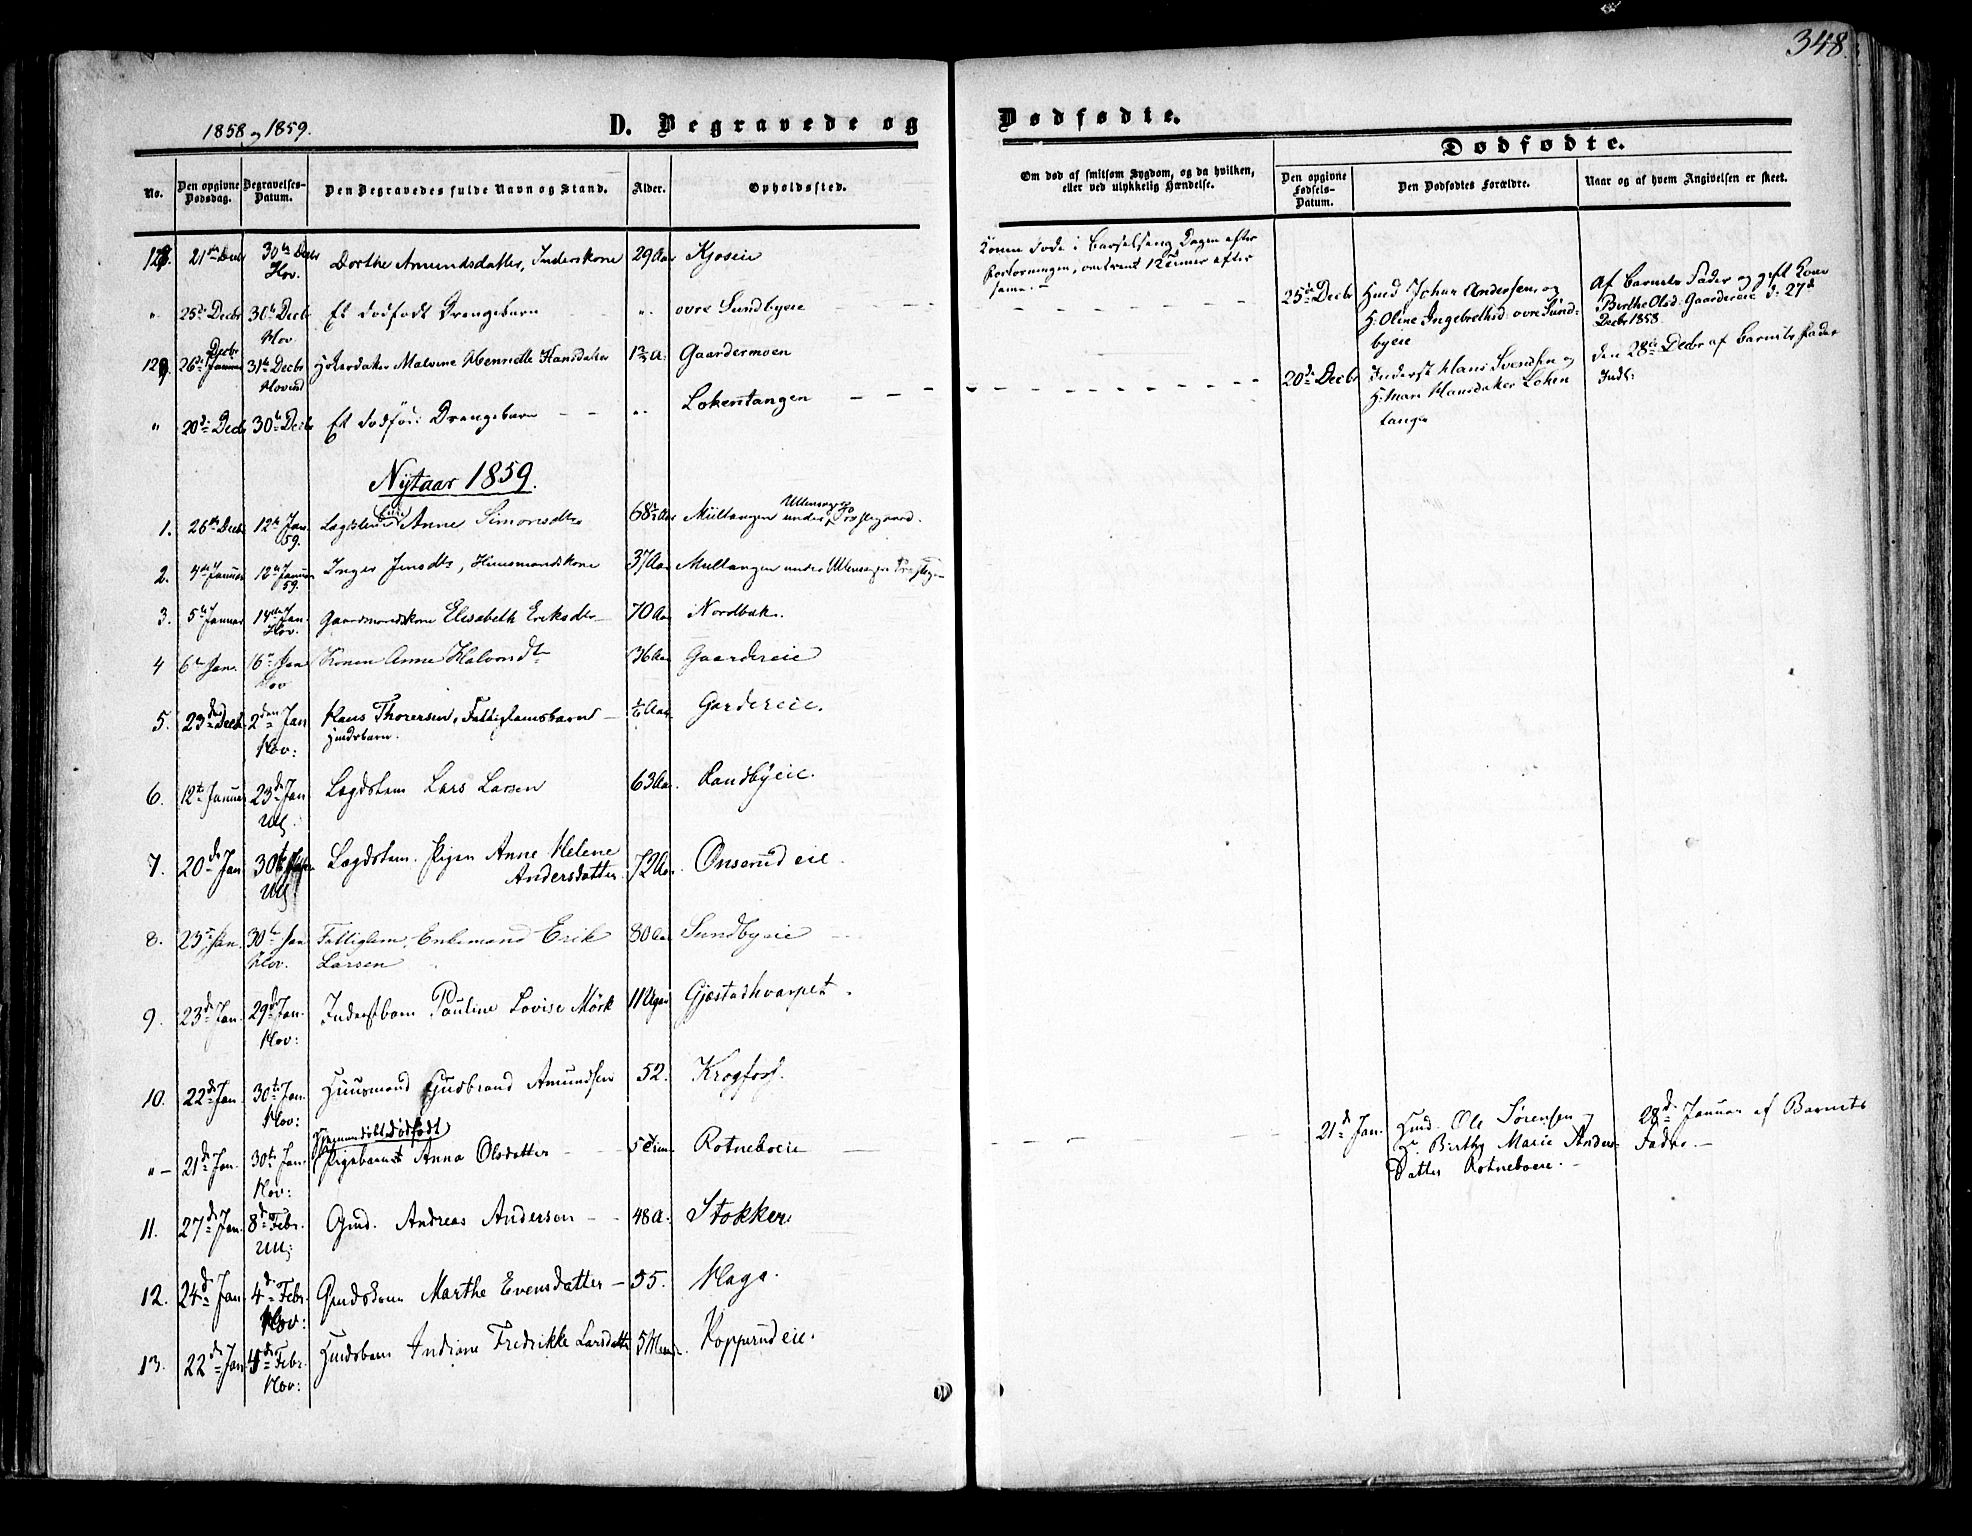 348.
1858 og 1859.
D. Begravede og Dødfødte.
Dødfødte.
No.
Den opgivne Dødsdag.
Begravelses-Datum.
Den Begravedes fulde Navn og Stand.
Alder.
Opholdssted.
Om død af smitsom Sygdom, og da hvilken, eller ved ulykkelig Hændelse.
Den opgivne Fødsels-Datum.
Den Dødfødtes Forældre.
Naar og af hvem Angivelsen er skeet.
128. 21de Decbr 30te Decbr Hov. Dorthe Amundsdatter, Inderskone 29 Aar Kjoseie
Konen døde i Barselseng Dagen efter
Forløsningen, omtrent 12 Timer efter
samme.
" 25de Decbr 30te Decbr Hov. Et dødfødt Drengebarn " øvre Sundbyeie
25de Decbr Husmd Johan Andersen og
H: Oline Ingebrethsd: øvre Sund-
byeie
Af Barnets Fader og gift Kone
Birthe Olsd: Gaardereie d: 27d
Decbr 1858.
129. 26de Decbr 31te Decbr Hovind Malvine Henriette Hansdatter Gaardermoen
" 20de Decbr 30te Decbr Et dødfødt Drengebarn " Løkentangen
20de Decbr Inderst Hans Svendsen og
H: Mari Hansdatter Løken
tangen
den 28de Decbr af Barnets Fader
Indb:
Nytaar 1859.
1. 26de Decbr 12te Jan 59. Anne Simonsdtr 68½ Aar Multangen under Ullensager Præstegaard.
2. 4de Januar 12te Januar 59. Inger Jensdtr, Huusmandskone 37 Aar Multangen under Ullensager
3. 5te Januar 14de Jan. Hov. Gaardmandskone Elisabeth Eriksdtr 70 Aar Nordbak.
4 6te Jan. 16de Jan Hov Konen Anne Halvorsdtr 36 Aar Gaardereie
5. 23de Decbr 2den Jan Hov: Hans Thorersen, Fattiglemsbarn Husdsbarn. Gardereie.
6. 12te Januar 23de Jan Ull. Lægdslem Lars Larsen 63 Aar. Randbyeie.
7. 20de Jan 30te Ull Lægdslem. Pigen Anne Helene
Andersdatter. 72 Aar. Onserud eie.
8. 23de Jan. 30te Jan Hov. Fattiglem, Enkemand Erik
Larsen 80 Aar Sundbyeie
9. 23de Jan. 29de Jan. Hov: Inderstbarn Pauline Lovise Mörk 11 Uger Gjestadhvarpet.
10. 22de Jan 30te Jan. Hov: Huusmand Gudbrand Amundsen 52. Krogfoss.
" 21de Jan. 30te Jan. Hov: dødfødt
Pigebarnet Anna Olsdatter 5 Tim. Rotneboeie
21de Jan. Husmd. Ole Sørensen og
H. Birthe Marie Anders-
Datter Rotneboeie.
28de Januar af Barnets
Fader.
11. 27de Jan. 8de Febr. Ull: Gmd. Andreas Anderson 48 A. Stokker.
12. 24de Jan. 4de Febr. Hov: Gmdskone Marthe Evensdatter 55. Haga.
13. 22de Jan 4de Febr. Hov: Husdsbarn Andrine Fredrikke Larsdatter 5 Maan. Kopperud eie.